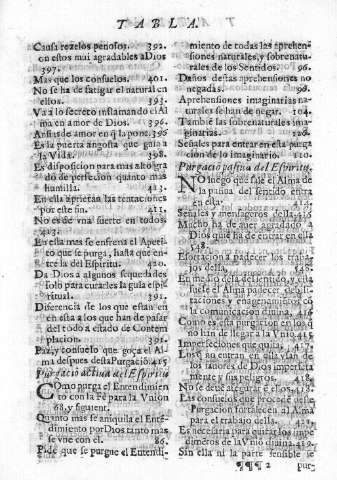 TABLA.
Causa rezelos penosos. 392.
on estos mui agradables a Dios
397.
Mas que los consuelos. 401.
No se ha de fatigar el natural en
ellos. 393.
Va a lo secreto inflamando el Al
ma en amor de Dios. 396.
Ansias de amor en q la pone. 396
Es la puerta angosta que guia a
la Vida. 398.
Es disposicion para mas alto gra
do de perfeccion quanto mas
humilla. 413.
En ella aprietan las tentaciones
por este fin. 413.
No es de vna suerte en todos.
413.
En ella mas se enfrena el Apeti-
to que se purga, hasta que en-
tre la del Espiritu. 420.
Da Dios a algunos sequedades
solo para curarles la guia espi-
ritual. 391.
Diferencia de los que estàn en
en esta a los que han de pasar
del todo a estado de Contem
placion. 391.
Paz, y consuelo que goza el Al
ma despues desta Purgaciō. 415
Purgaciō activa del Espiritu
COmo purga el Entendimiēn
to con la Fè para la Vnion
68. y siguient.
Quanto mas se aniquila el Entē-
dimiento por Dios tanto mas
se vne con el. 86.
Pide que se purgue el Entendi-
miento de todas las aprehen-
siones naturales, y sobrenatu-
rales de los Sentidos. 96.
Daños destas aprehensiones no
negadas. 96.
Aprehensiones imaginarias na-
turales se han de negar. 104.
Tambiē las sobrenaturales ima
ginarias. 126.
Señales para entrar en esta purga
ción de lo imaginario. 110.
Purgacion pasiva del Espiritu.
NO luego que sale el Alma de
la pasiva del sentido entra
en esta. 415
Señales y mensageros della. 416
Mucho ha de aver agradado a
Dios quien ha de entrar en ella
548.
Esortacion a padecer los traba-
jos della. 546.
En medio de la del sentido, y esta
suele el Alma padecer debili-
taciones y enagenamientos cō
la comunicacion divina. 416
Como es esta purgacion en los q
no han de llegar a la Vnion. 417
Imperfecciones que quita. 417.
Los q no entran en ella vsan de
los favores de Dios imperfeta
mente y sus peligros.
No se debe asegurar e ellos. 418.
Las consuelos que procede desta
Purgacion fortalecen al Alma
para el trabajo della.
Es necesaria para quitar los impe
dimentos de la Vniō divina. 419.
Sin ella ni la parte sensible se
¶¶¶ 2 pur-